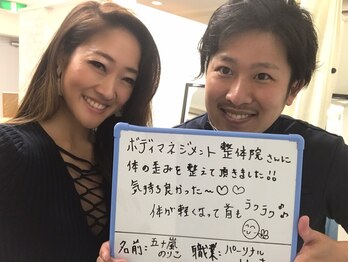 ボディマネジメント 整体院さんに
体の歪みを整えて頂きました!!
気持ち良かった〜♡♡
体が軽くなって首も ラクラク♪
名前: 五十嵐 のりこ 職業: パーソナル